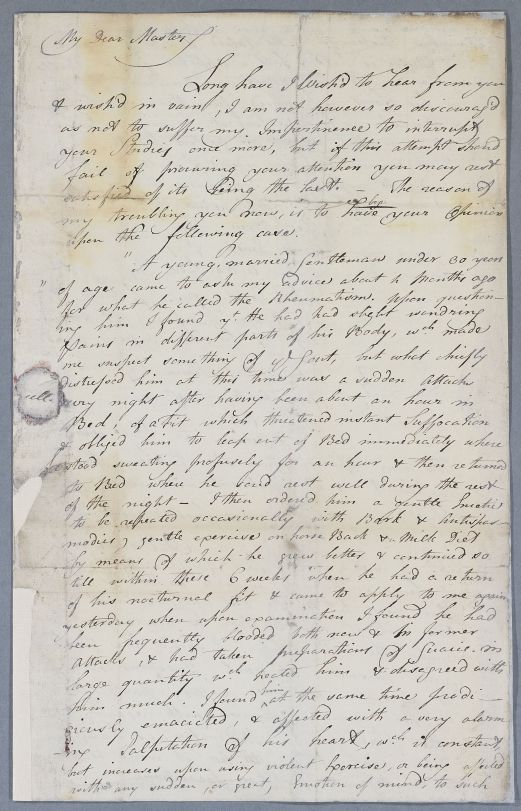 My Dear Master
Long have I Wish'd to hear from you
& wish'd in vain, I am not however so discourag'd
as not to suffer my Impertinence to interrupt
your Studies once more, but if this attempt should
fail of procuring your attention you may rest
satisfied of its being the last. – The reason of
my troubling you now, is to have your Opinion
upon the following case.
" A young married Gentleman under 30 years
" of age came to ask my advice about 4 Months ago
for what he called the Rheumatism. Upon question-
ing him I found yt He had had slight wandering
Pains in different parts of his Body, wch made
me suspect something of ye Gout, but what chiefly
distressed him at this time was a sudden attack
every night after having been about an hour in
Bed, of a fit which threatened instant Suffocation
& oblijed him to leap out of Bed immediately where
stood sweating profusely for an hour & then returned
to Bed where he could rest well during the rest
of the night – I then ordered him a gentle Emetic
to be repeated occasionally with Bark & Antispas-
modics, gentle exercise on horse Back & a Milk Diet
by means of which he grew better & continued so
till within these 6 weeks when he had a return
of his nocturnal fit & came to apply to me again
yesterday when upon examination I found he had
been frequently blooded both now & in former
Attacks, & had taken preparations of Guaiac. in
large quantity wch heated him & disagreed with
him much. I found him at the same time prodi-
giously emaciated, & affected with a very alarm-
ing Palpitation of his heart, wch is constant,
but increases upon using violent Exercise, or being affected
with any sudden, or great, Emotion of mind, to such